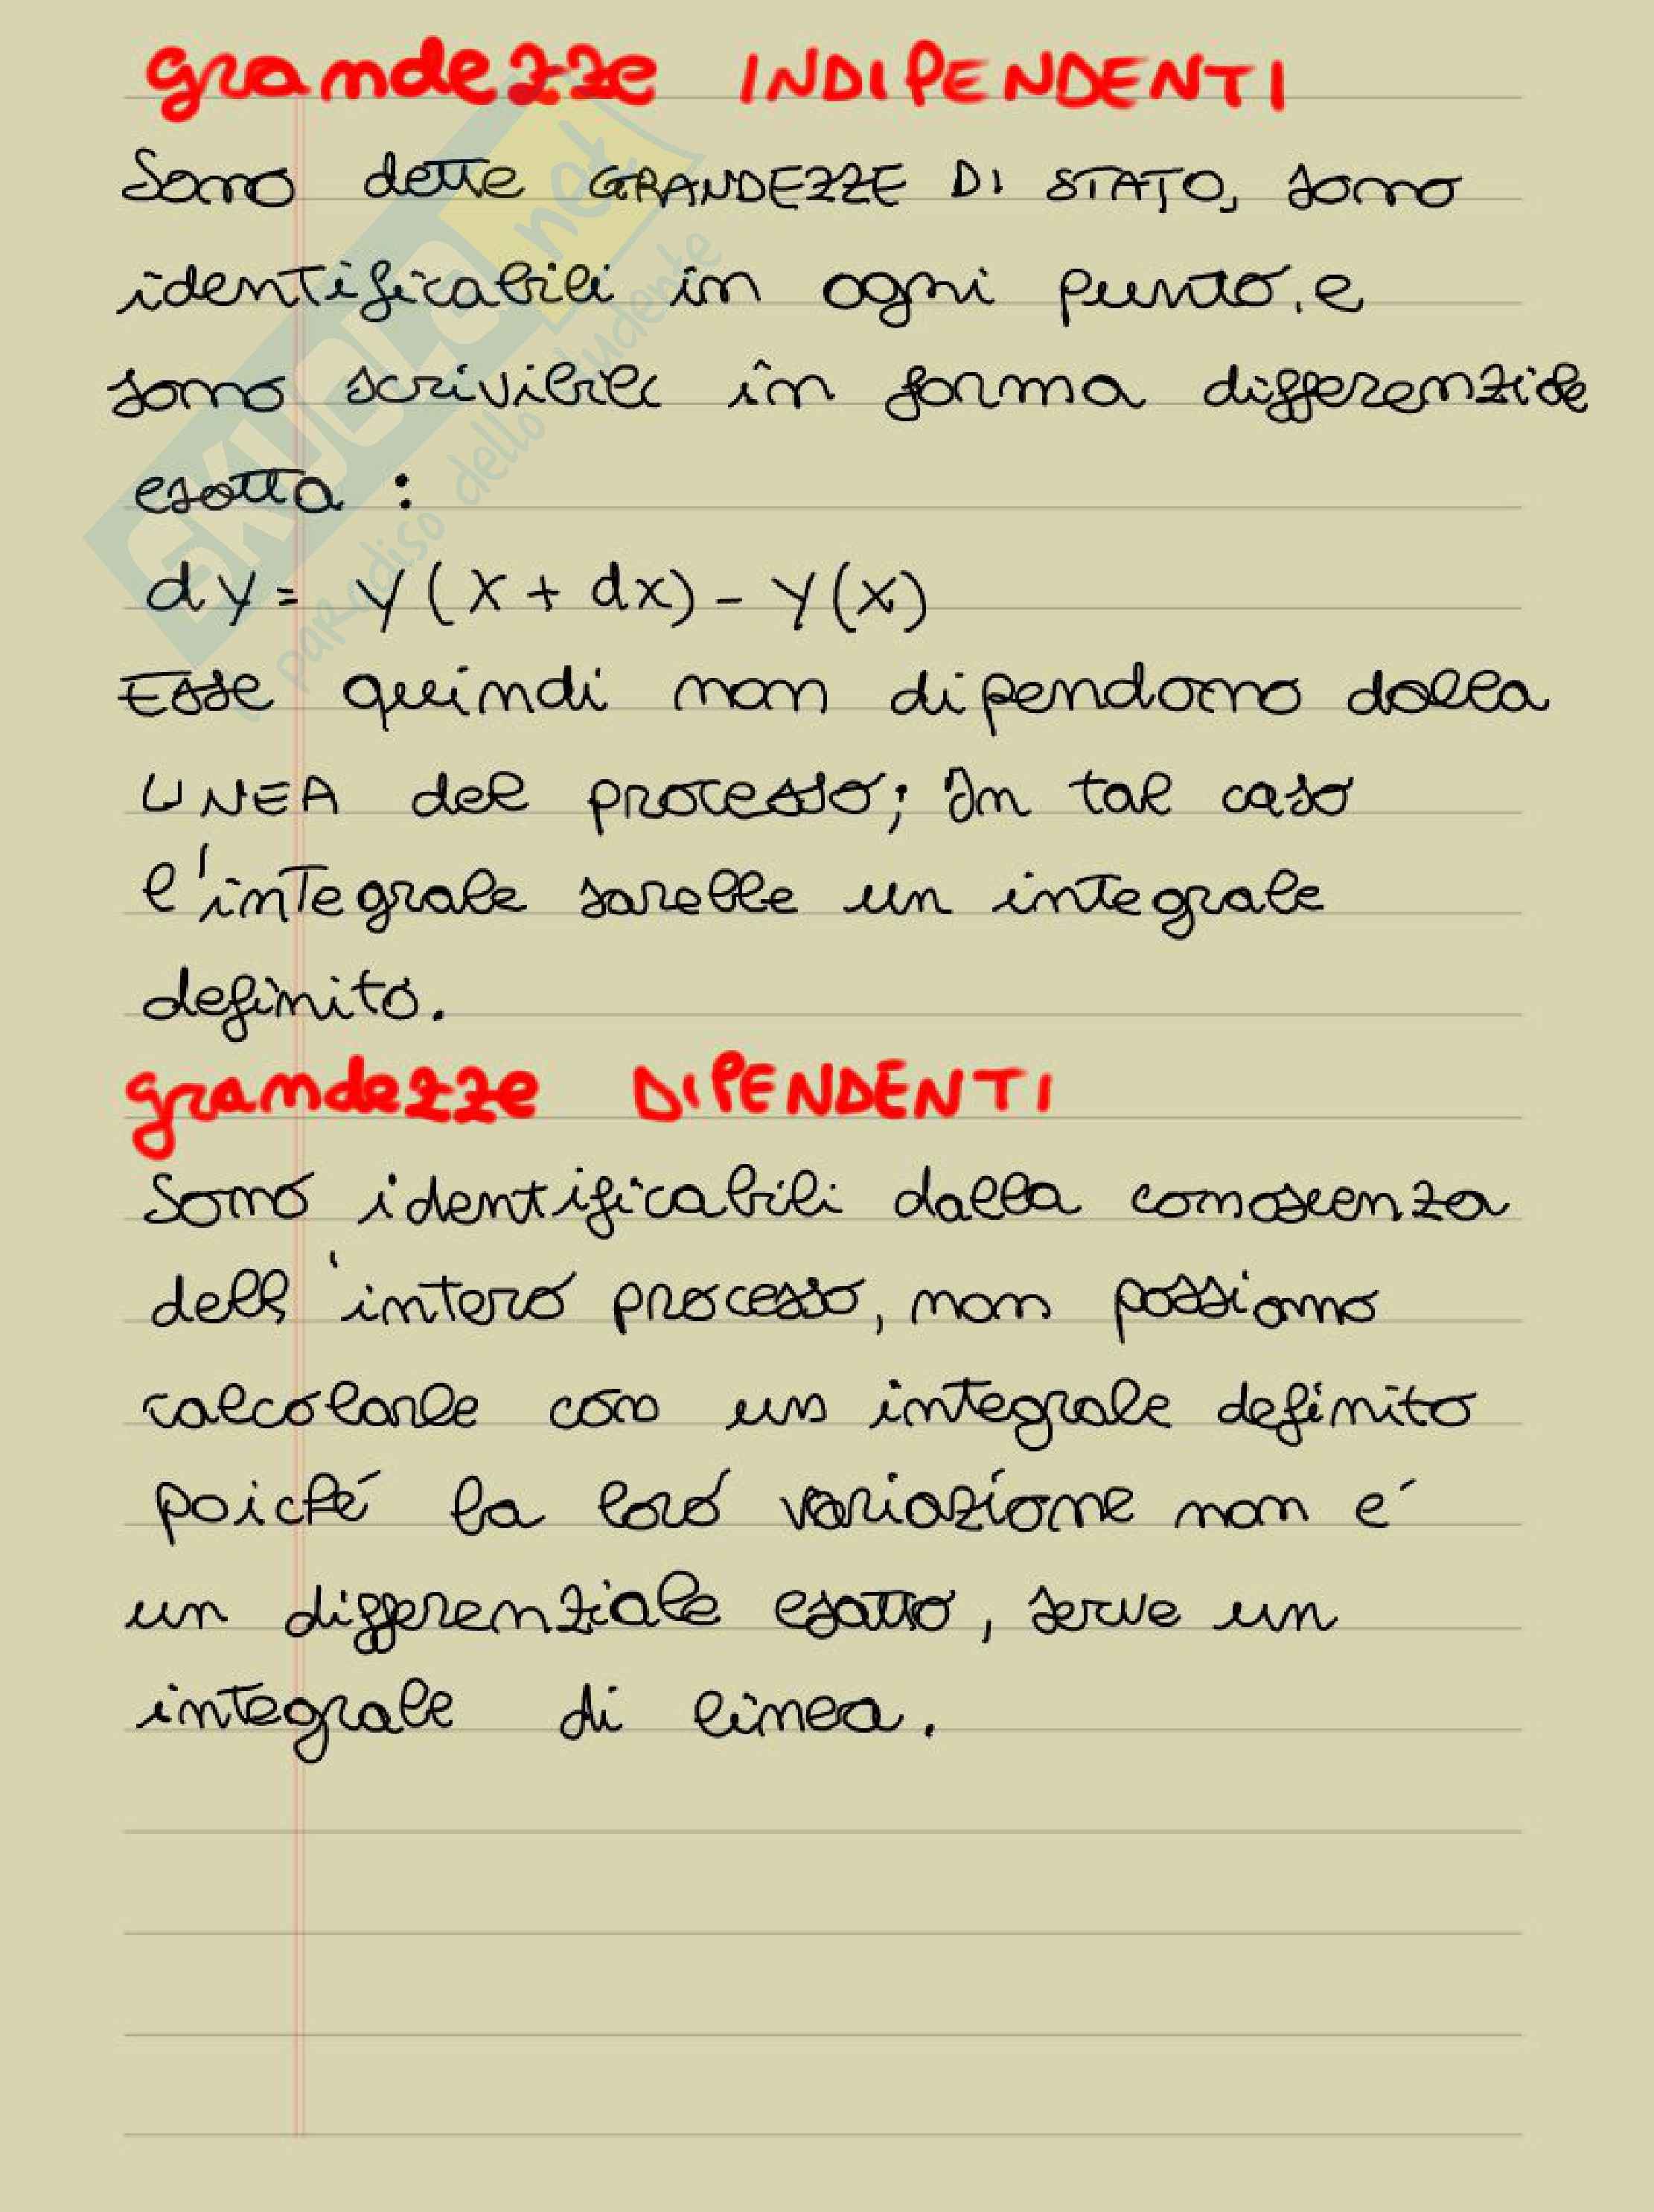 grandezze INDIPENDENTI
Sono dette GRANDEZZE DI STATO, sono
identificabili in ogni punto, e
sono scrivibili in forma differenziale
esatta :
dy = y(x + dx) - y(x)
Esse quindi non dipendono dalla
LINEA del processo; In tal caso
l'integrale sarebbe un integrale
definito.
grandezze DIPENDENTI
Sono identificabili dalla conoscenza
dell'intero processo, non possiamo
calcolarle con un integrale definito
poiché la loro variazione non é
un differenziale esatto, serve un
integrale di linea.
SKUOLA.net
paradiso dello studente